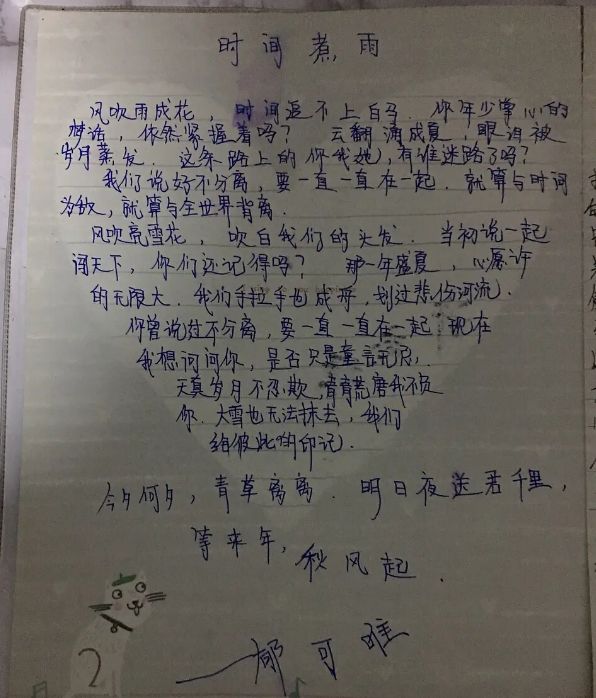 时间煮雨
风吹雨成花，时间追不上白马．你年少掌心的
梦话，依然紧握着吗？云翻涌成夏，眼泪被
岁月蒸发．这条路上的你我她，有谁迷路了吗？
我们说好不分离，要一直一直在一起．就算与时间
为敌，就算与全世界背离．
风吹亮雪花，吹白我们的头发．当初说一起
闯天下，你们还记得吗？那一年盛夏，心愿许
的无限大．我们手拉手也成舟，划过悲伤河流．
你曾说过不分离，要一直一直在一起．现在
我想问问你，是否只是童言无忌．
天真岁月不忍欺，青春荒唐我不负
你．大雪也无法抹去，我们
给彼此的印记．
今夕何夕，青草离离．明月夜送君千里，
等来年，
秋风起．
——郁可唯
2